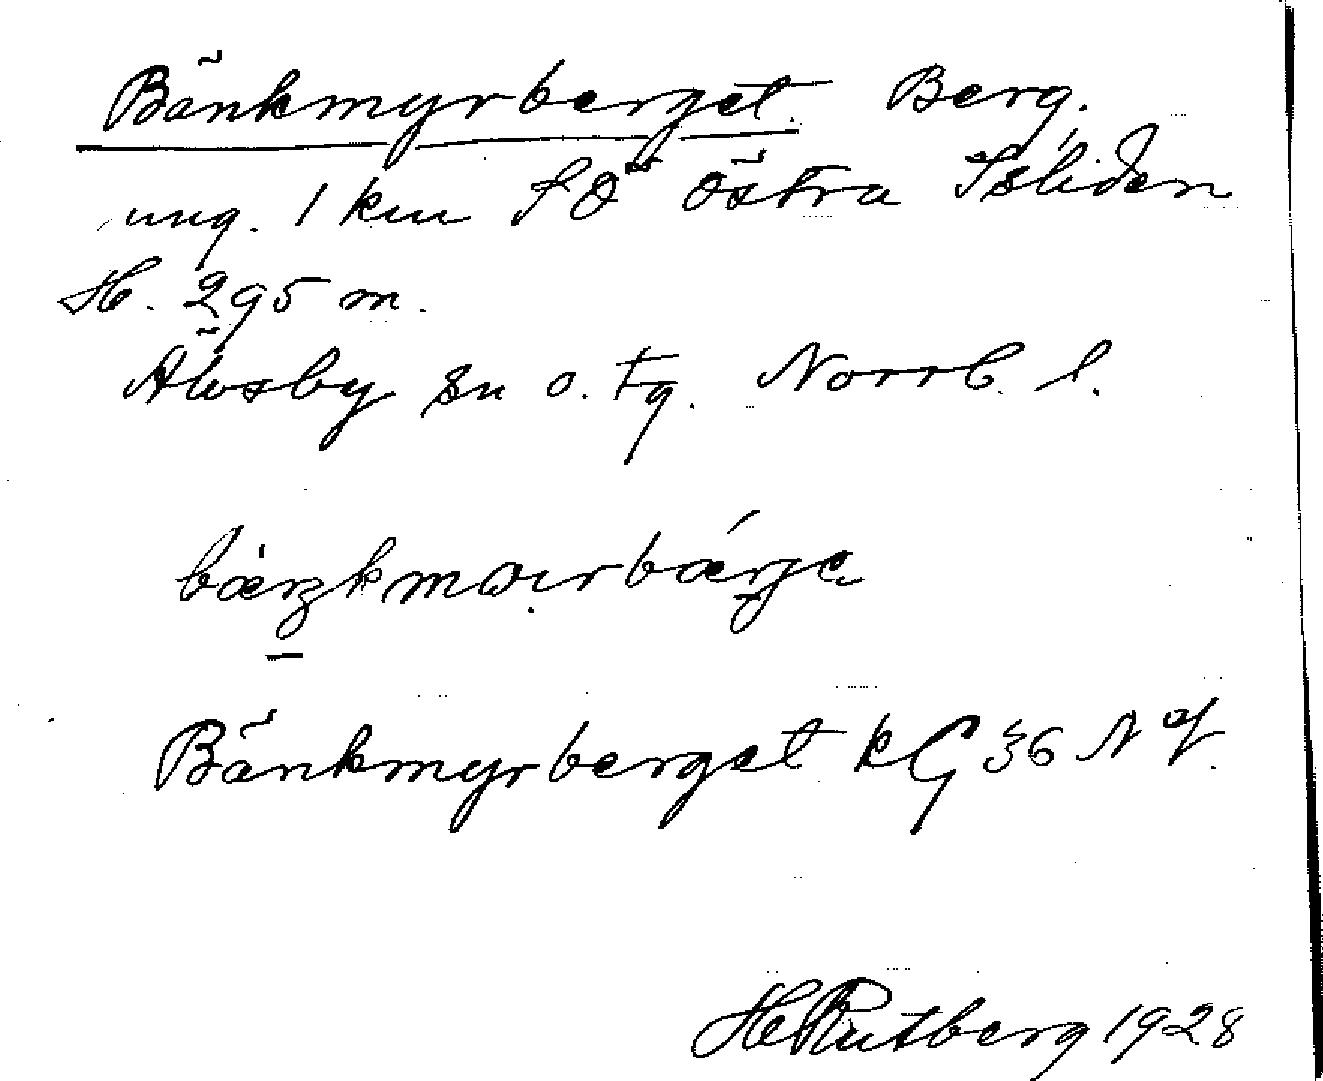 Bänkmyrberget. Berg.
ung. 1 km SO Östra Isliden
H. 295 m.
Älvsby sn o. tg. Norrb. l.
Bänkmyrberget kG 36 N
H Rutberg 1928